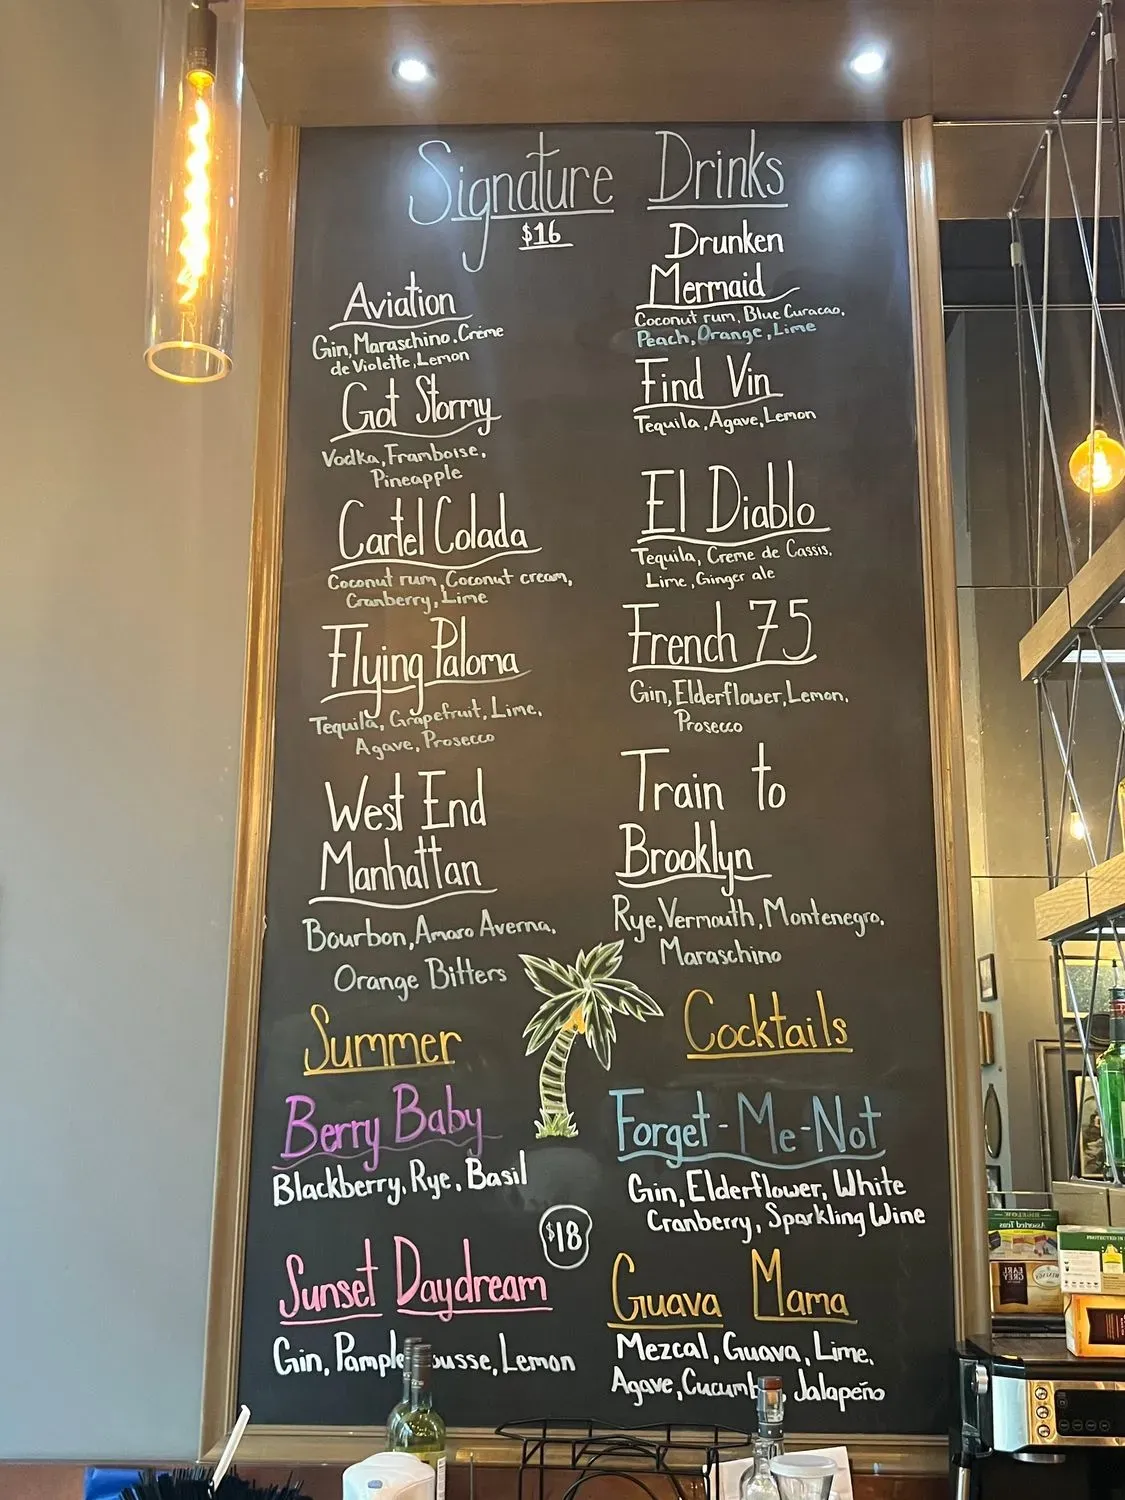 Signature Drinks
$16
Aviation
Gin, Maraschino, Créme
de Violette, Lemon
Got Stormy
Vodka, Framboise,
Pineapple
Cartel Colada
Coconut rum, Coconut cream,
Cranberry, Lime
Flying Paloma
Tequila, Grapefruit, Lime,
Agave, Prosecco
West End
Manhattan
Bourbon, Amaro Averna,
Orange Bitters
Drunken
Mermaid
Coconut rum, Blue Curacao,
Peach, Orange, Lime
Find Vin
Tequila, Agave, Lemon
El Diablo
Tequila, Creme de Cassis,
Lime, Ginger ale
French 75
Gin, Elderflower, Lemon,
Prosecco
Train to
Brooklyn
Rye, Vermouth, Montenegro,
Maraschino
Summer Cocktails
Berry Baby
Blackberry, Rye, Basil
Forget-Me-Not
Gin, Elderflower, White
Cranberry, Sparkling Wine
$18
Sunset Daydream
Gin, Lemon
Guava Mama
Mezcal, Guava, Lime,
Agave, Jalapeño
Assorted Teas
EARL
GREY